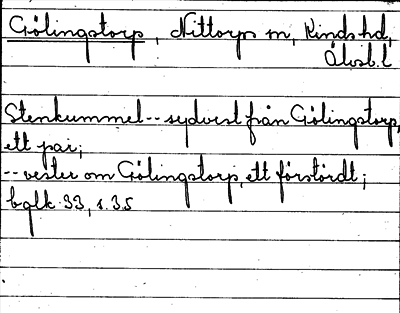 Gölingstorp, Nittorps sn, Kinds hd,
Älvsb. l
Stenkummel -- sydvest från Gölingstorp,
ett par;
-- vester om Gölingstorp, ett förstördt;
bglk 33, s. 35